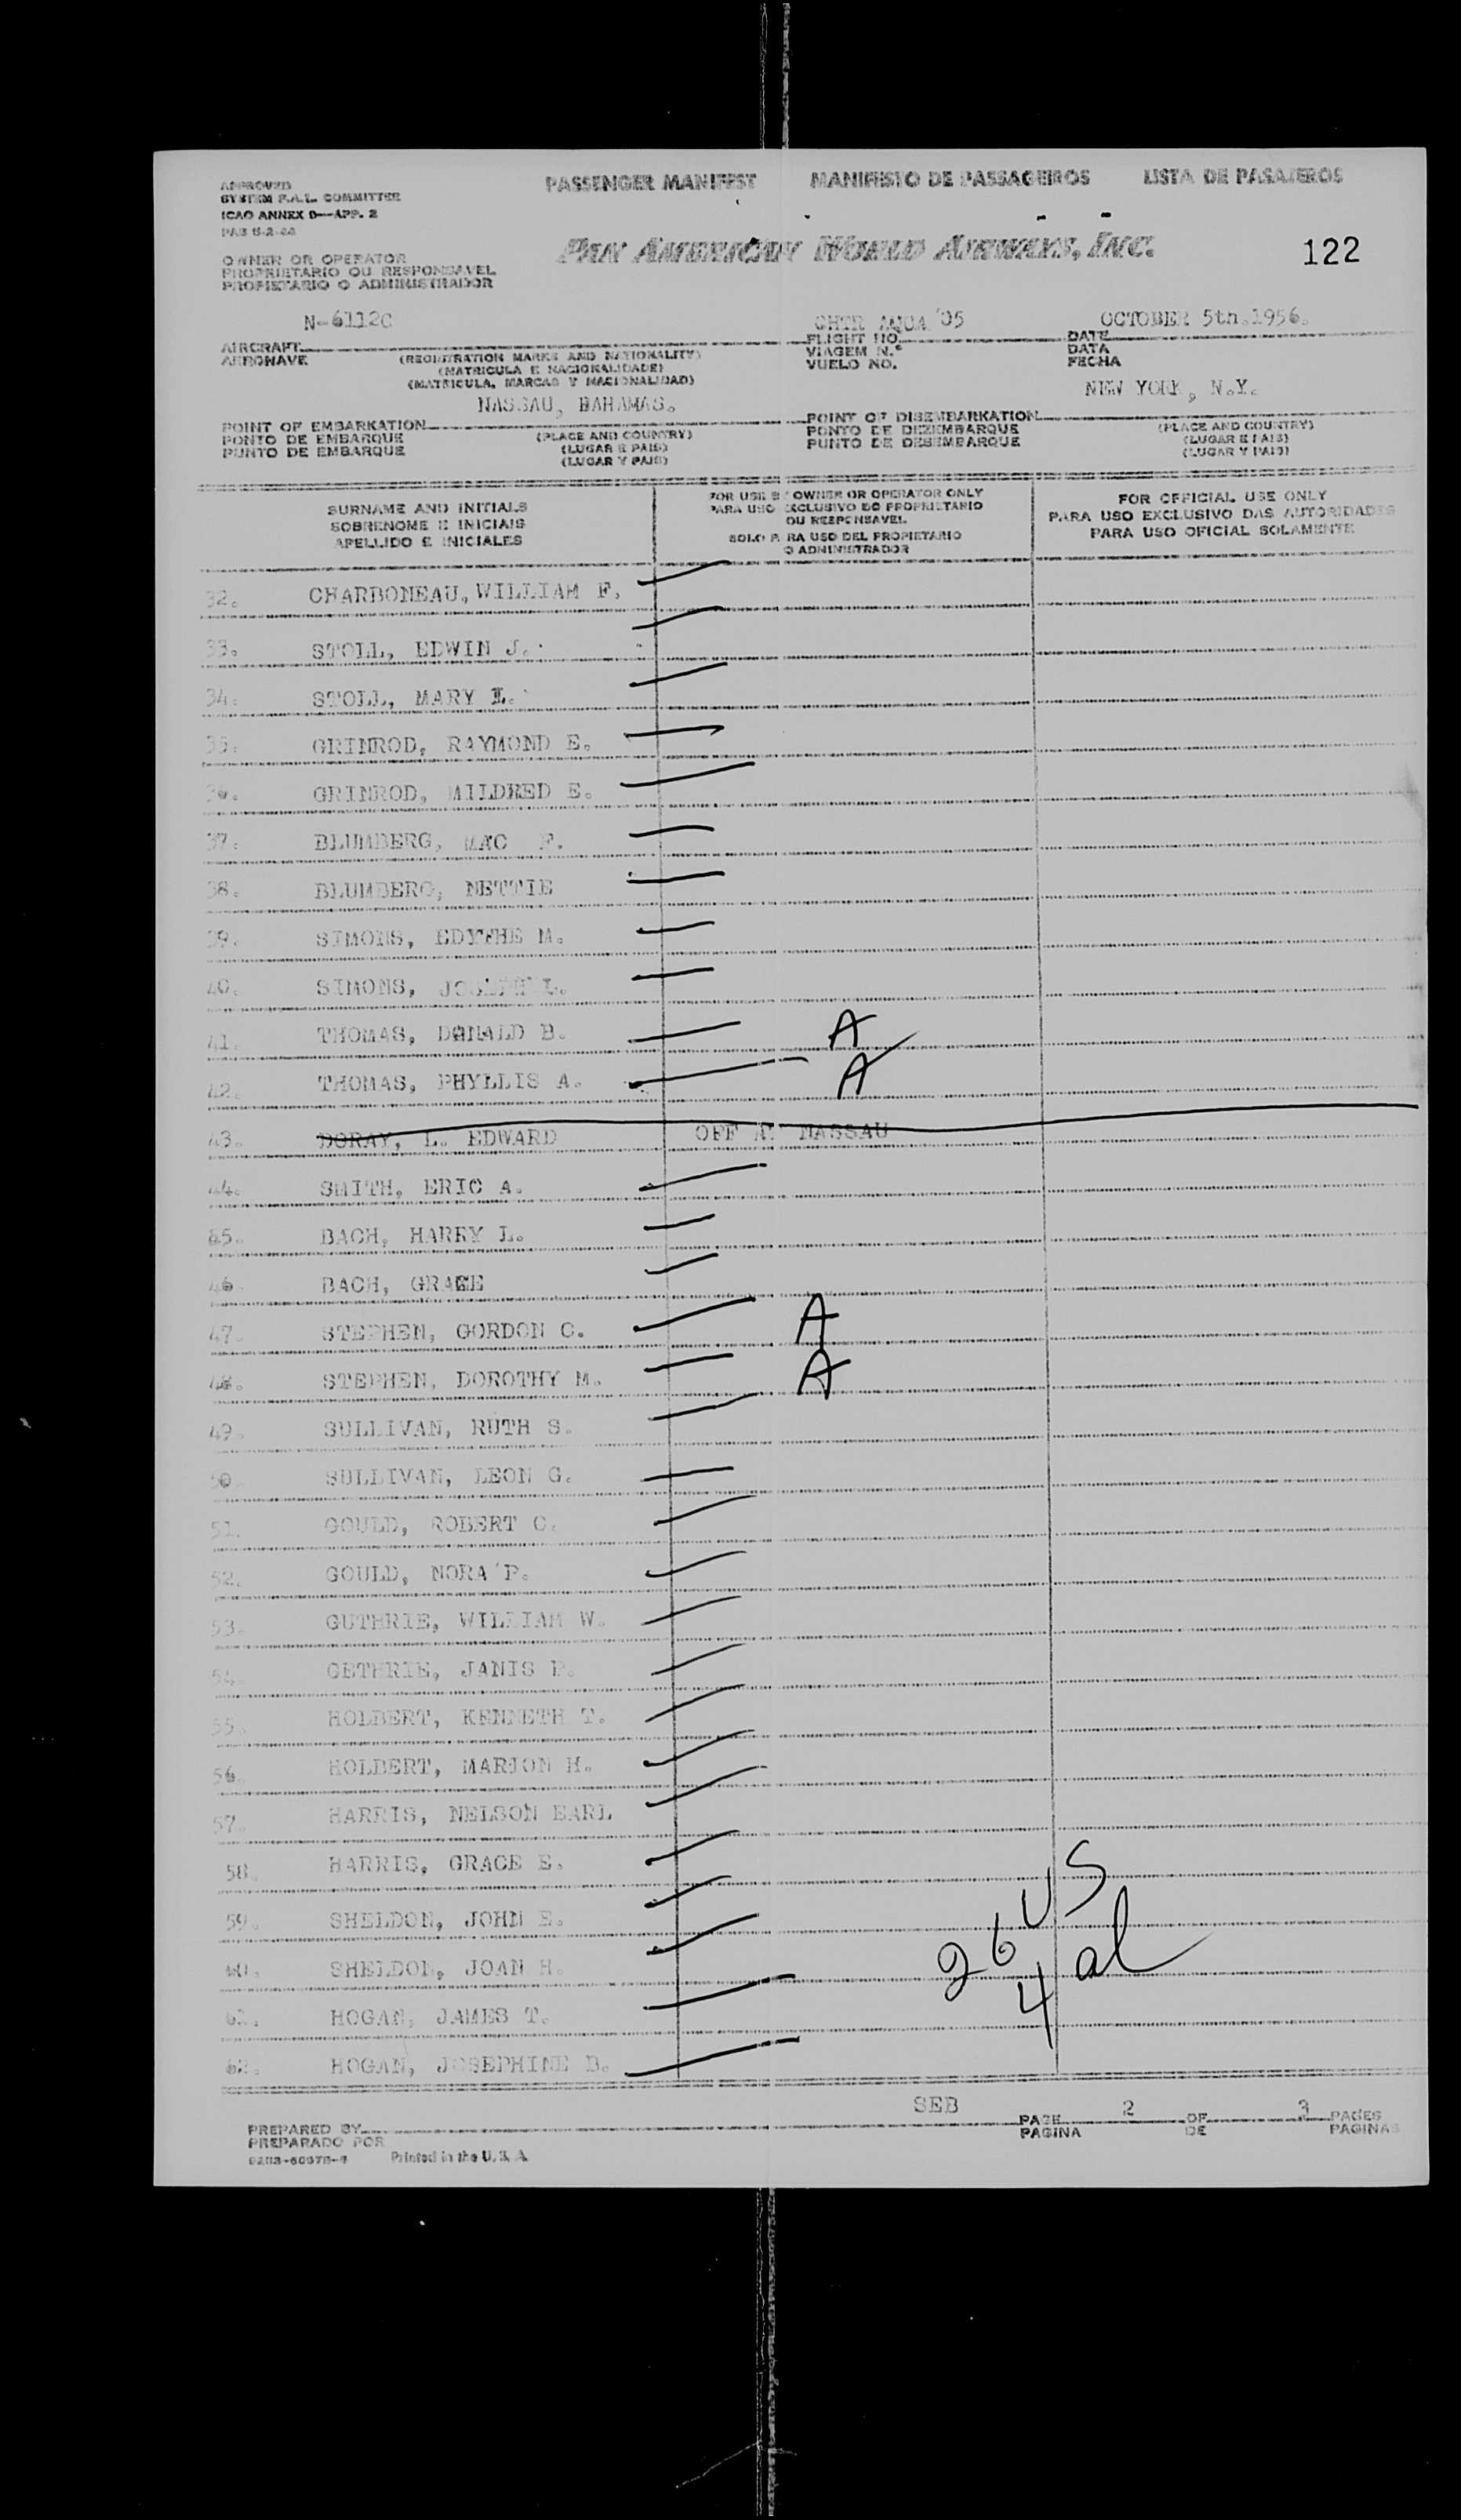 APPROVED
SYSTEM F.A.L. COMMITTEE
ICAO ANNEX 9—APP. 2
PASSENGER MANIFEST MANIFESTO DE PASSAGEIROS LISTA DE PASAJEROS
PAN AMERICAN WORLD AIRWAYS, INC.
122
OWNER OR OPERATOR
PROPRIETARIO OU RESPONSAVEL
PROPIETARIO O ADMINISTRADOR
N-6112C '05 OCTOBER 5th.1956.
AIRCRAFT FLIGHT NO. DATE
AERONAVE (REGISTRATION MARKS AND NATIONALITY) VIAGEM N.º DATA
(MATRICULA E NACIONALIDADE) VUELO NO. FECHA
(MATRICULA, MARCAS Y NACIONALIDAD)
NASSAU, BAHAMAS. NEW YORK, N.Y.
POINT OF EMBARKATION POINT OF DISEMBARKATION
PONTO DE EMBARQUE (PLACE AND COUNTRY) PONTO DE DEZEMBARQUE (PLACE AND COUNTRY)
PUNTO DE EMBARQUE (LUGAR E PAIS) PUNTO DE DESEMBARQUE (LUGAR E PAIS)
(LUGAR Y PAIS) (LUGAR Y PAIS)
SURNAME AND INITIALS
SOBRENOME E INICIAIS
APELLIDO E INICIALES
FOR USE BY OWNER OR OPERATOR ONLY
PARA USO EXCLUSIVO DO PROPRIETARIO
OU RESPONSAVEL
SOLO PARA USO DEL PROPIETARIO
O ADMINISTRADOR
FOR OFFICIAL USE ONLY
PARA USO EXCLUSIVO DAS AUTORIDADES
PARA USO OFICIAL SOLAMENTE
32. CHARBONEAU, WILLIAM F.
33. STOLL, EDWIN J.
34. STOLL, MARY L.
35. GRINROD, RAYMOND E.
36. GRINROD, MILDRED E.
37. BLUMBERG, MAC F.
38. BLUMBERG, NETTIE
39. SIMONS, EDYTHE M.
40. SIMONS, JOSEPH L.
41. THOMAS, DONALD B. A
42. THOMAS, PHYLLIS A. A
43. DORAY, L. EDWARD OFF AT NASSAU
44. SMITH, ERIC A.
45. BACH, HARRY L.
46. BACH, GRACE
47. STEPHEN, GORDON C. A
48. STEPHEN, DOROTHY M. A
49. SULLIVAN, RUTH S.
50. SULLIVAN, LEON G.
51. GOULD, ROBERT C.
52. GOULD, NORA P.
53. GUTHRIE, WILLIAM W.
54. GETHRIE, JANIS P.
55. HOLBERT, KENNETH T.
56. HOLBERT, MARION H.
57. HARRIS, NELSON EARL
58. HARRIS, GRACE E.
59. SHELDON, JOHN E.
60. SHELDON, JOAN H.
61. HOGAN, JAMES T.
62. HOGAN, JOSEPHINE B.
26 US
4 al
SEB
PREPARED BY PAGE 2 OF 3 PAGES
PREPARADO POR PAGINA DE PAGINAS
Printed in the U.S.A.